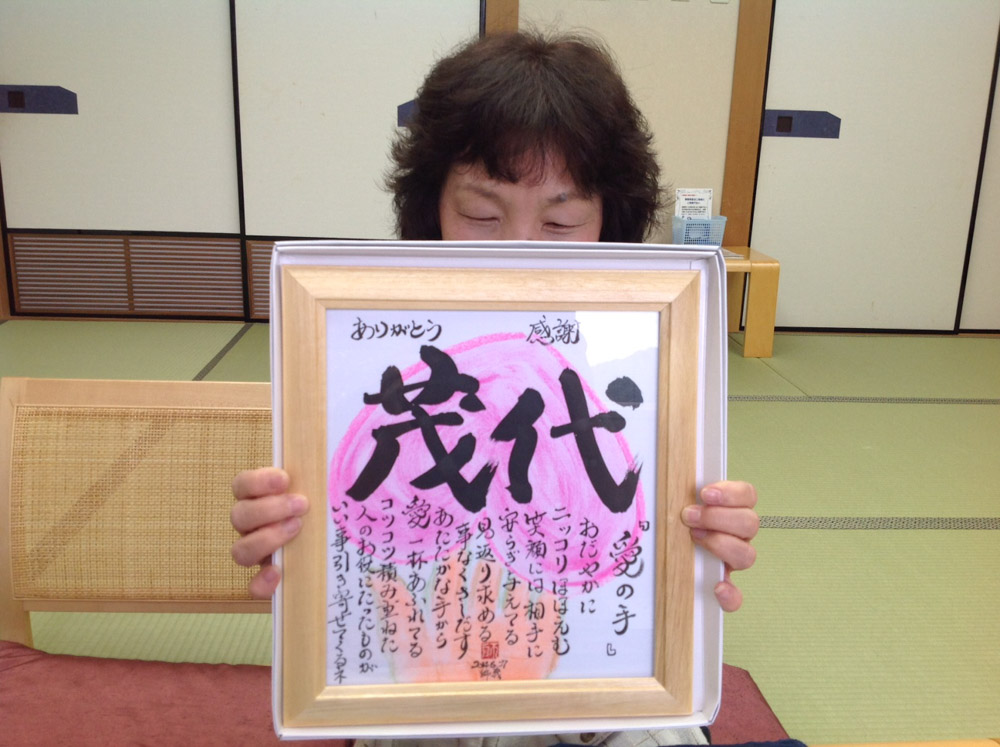 ありがとう
感謝
茂代
『愛の手』
おだやかに
ニッコリほほえむ
笑顔には相手に
安らぎ与えてる
見返り求める
事なくさしだす
あたたかな手から
愛一杯あふれてる
コツコツ積み重ねた
人のお役にたったものが
いい事引き寄せてくるネ